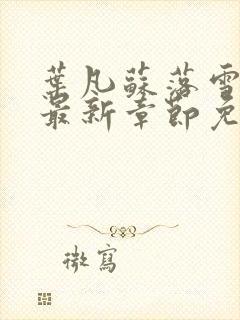 葉凡蘇落雪
最新章節免
微寫